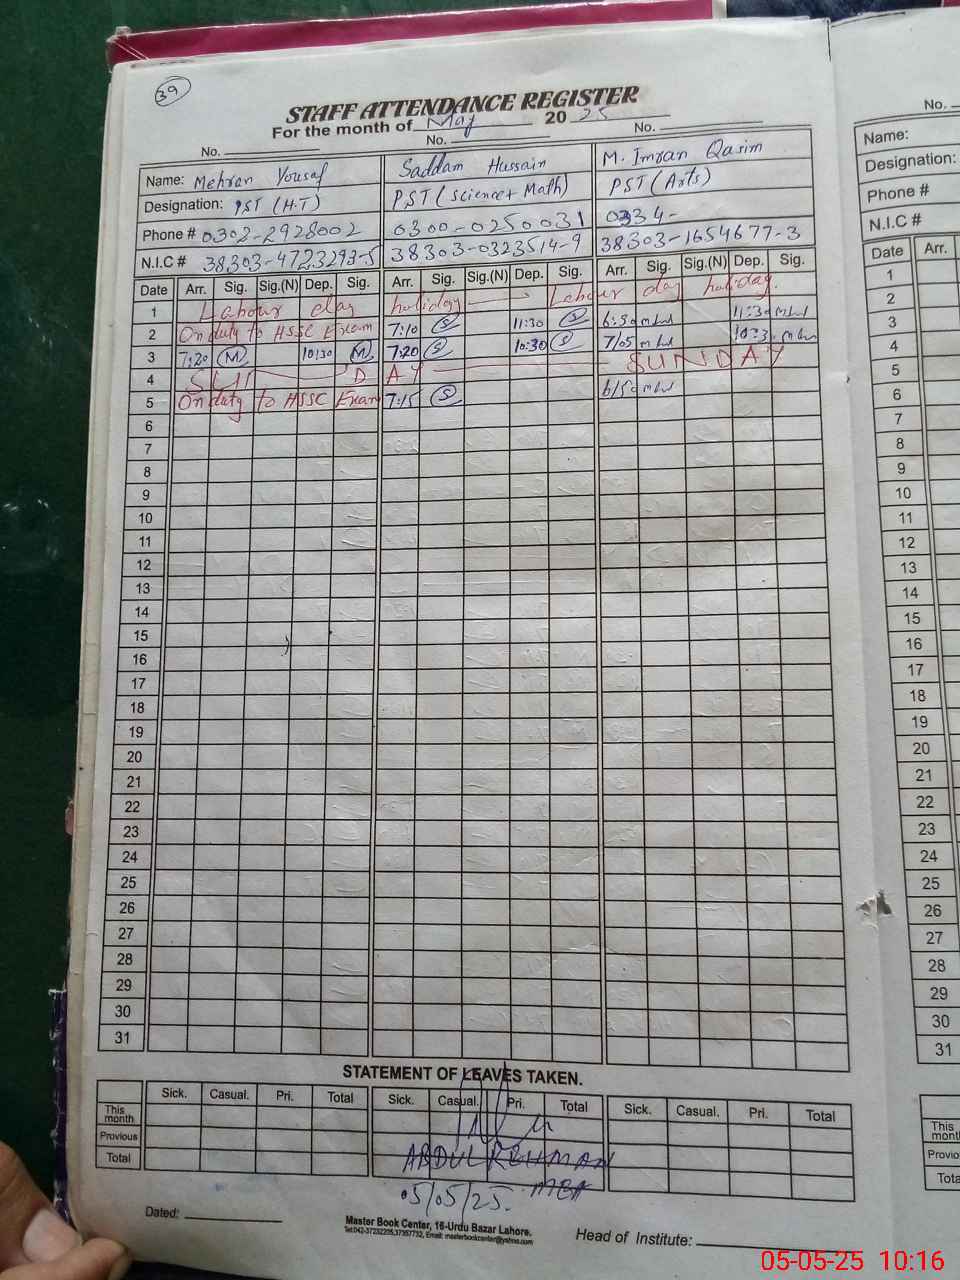 39
STAFF ATTENDANCE REGISTER
For the month of May 20 25
No. No. No.
Name: Mehran Yousaf Saddam Hussain M. Imran Qasim
Designation: PST (H.T) PST (Science+Math) PST (Arts)
Phone # 0302-2928002 0300-0250031 0334-
N.I.C # 38303-4723293-5 38303-0323514-9 38303-1654677-3
Date Arr. Sig. Sig.(N) Dep. Sig. Arr. Sig. Sig.(N) Dep. Sig. Arr. Sig. Sig.(N) Dep. Sig.
1 Labour day holiday Labour day holiday.
2 On duty to HSSC Exam 7:10 S 11:30 S 6:50 11:30
3 7:20 M 10:30 M 7:20 S 10:30 S 7/05
4 SUN D A Y SUNDAY
5 On duty to HSSC Exam 7:15 S 6/50
6
7
8
9
10
11
12
13
14
15
16
17
18
19
20
21
22
23
24
25
26
27
28
29
30
31
STATEMENT OF LEAVES TAKEN.
Sick. Casual. Pri. Total Sick. Casual. Pri. Total Sick. Casual. Pri. Total
This month
Previous
Total
ABDUL REHMAN
MEA
05/05/25.
Dated:
Master Book Center, 16-Urdu Bazar Lahore.
Tel:042-37232205,37357732, Email: masterbookcenter@yahoo.com
Head of Institute:
No.
Name:
Designation:
Phone #
N.I.C #
Date Arr.
1
2
3
4
5
6
7
8
9
10
11
12
13
14
15
16
17
18
19
20
21
22
23
24
25
26
27
28
29
30
31
This
Total
05-05-25 10:16